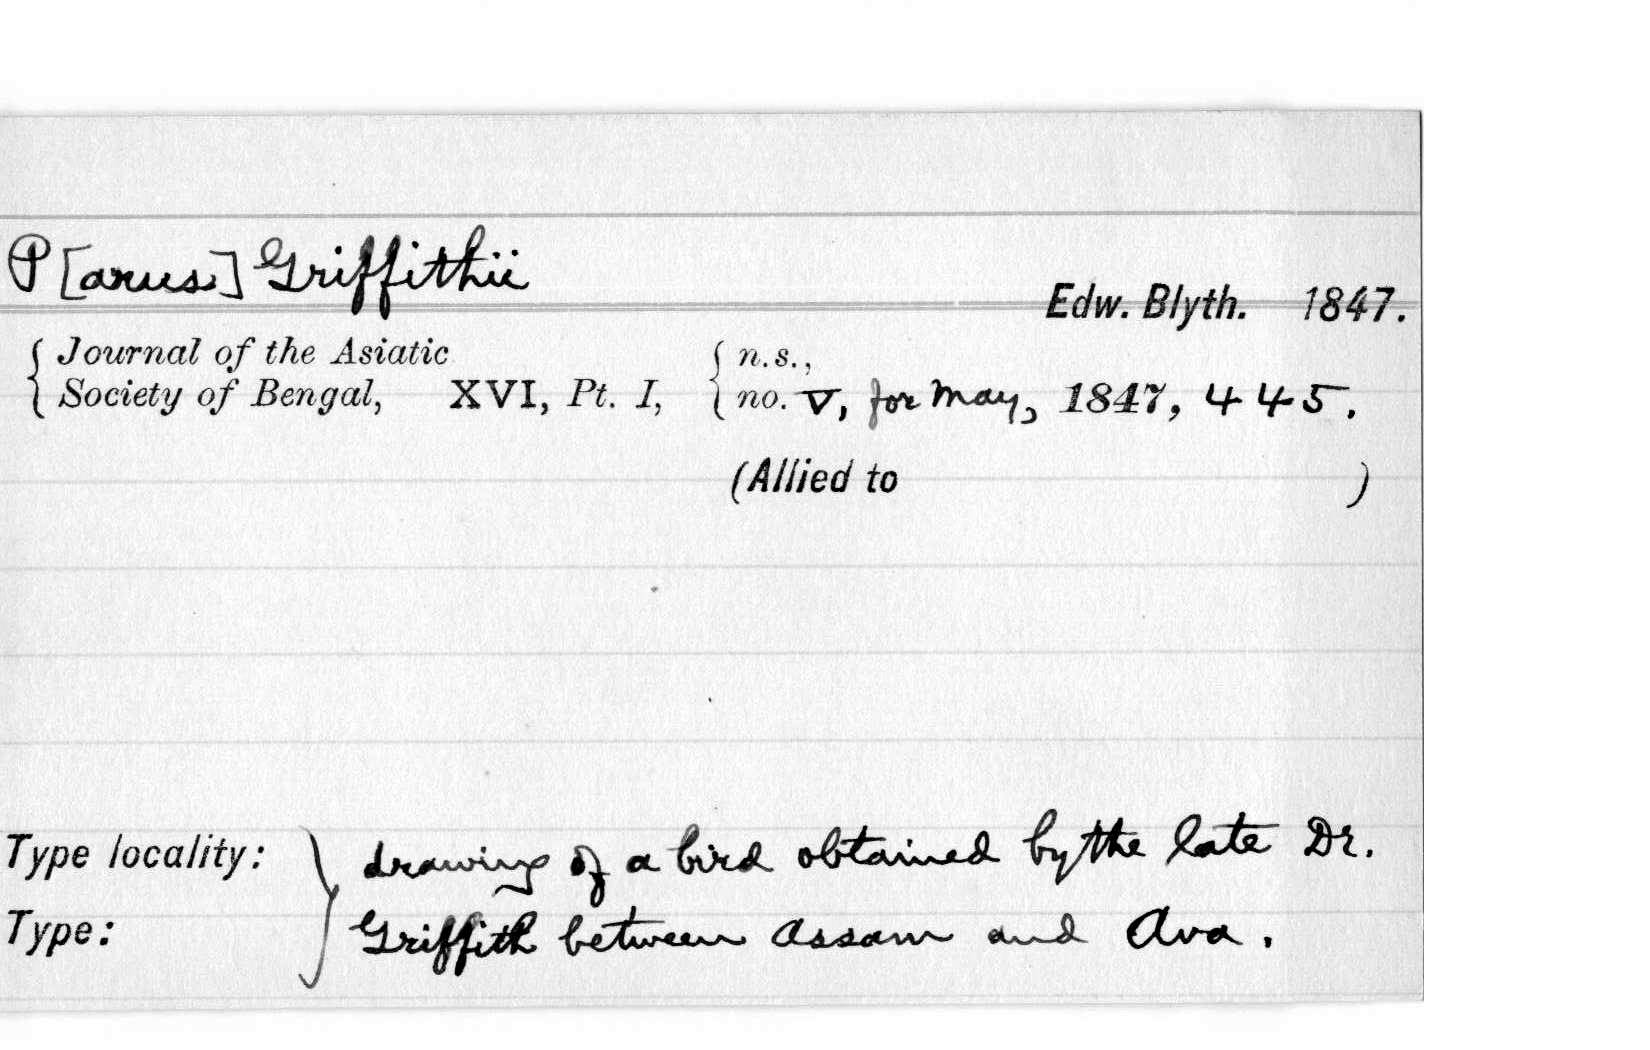 P[arus] Griffithii
Edw. Blyth. 1847.
Journal of the Asiatic n.s.,
Society of Bengal, XVI, Pt. I, no. V, for May, 1847, 445.
(Allied to )
Type locality: drawing of a bird obtained by the late Dr.
Type: Griffith between Assam and Ava.